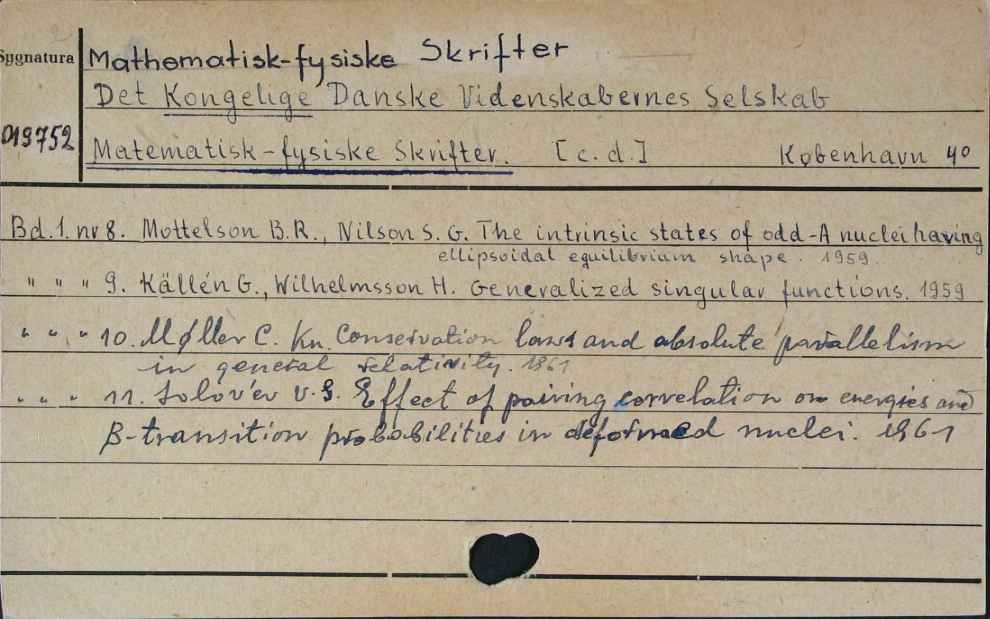 Sygnatura
Mathematisk-fysiske Skrifter
Det Kongelige Danske Videnskabernes Selskab
019752
Matematisk-fysiske Skrifter. [c.d.] København 4⁰
Bd. 1. nr 8. Mottelson B.R., Nilson S. G. The intrinsic states of odd-A nuclei having
ellipsoidal equilibrium shape. 1959.
" " " 9. Källén G., Wilhelmsson H. Generalized singular functions. 1959
" " " 10. Møller C. Kn. Conservation laws and absolute parallelism
in general relativity. 1961
" " " 11. Solov'ev V.G. Effect of pairing correlation on energies and
β-transition probabilities in deformed nuclei. 1961